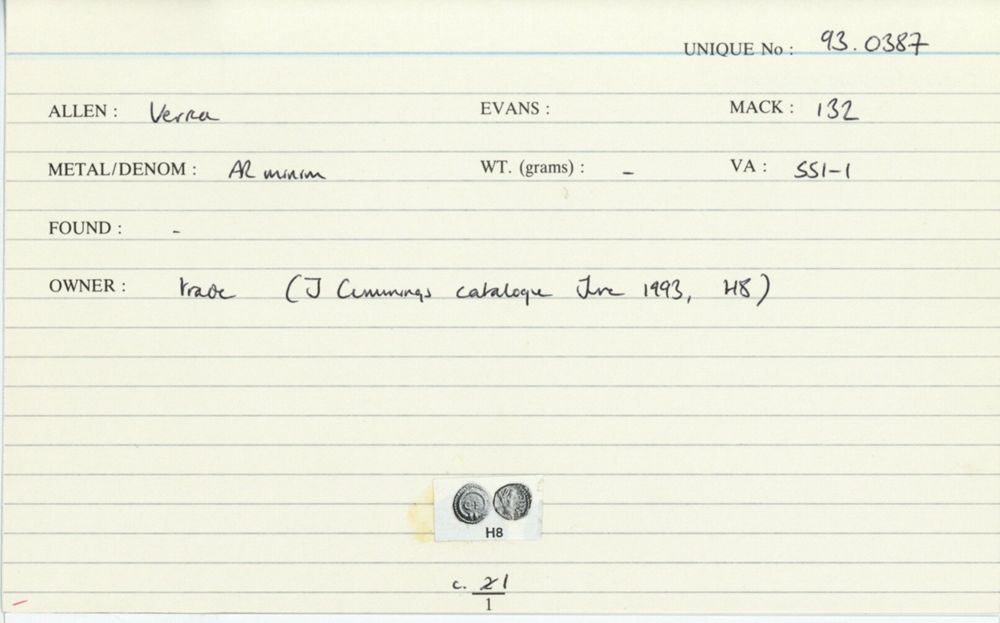 UNIQUE No : 93.0387
ALLEN : Verica EVANS : MACK : 132
METAL/DENOM : AR minim WT. (grams) : - VA : 551-1
FOUND : -
OWNER : trade (J Cummings catalogue June 1993, H8)
H8
c. 1
1